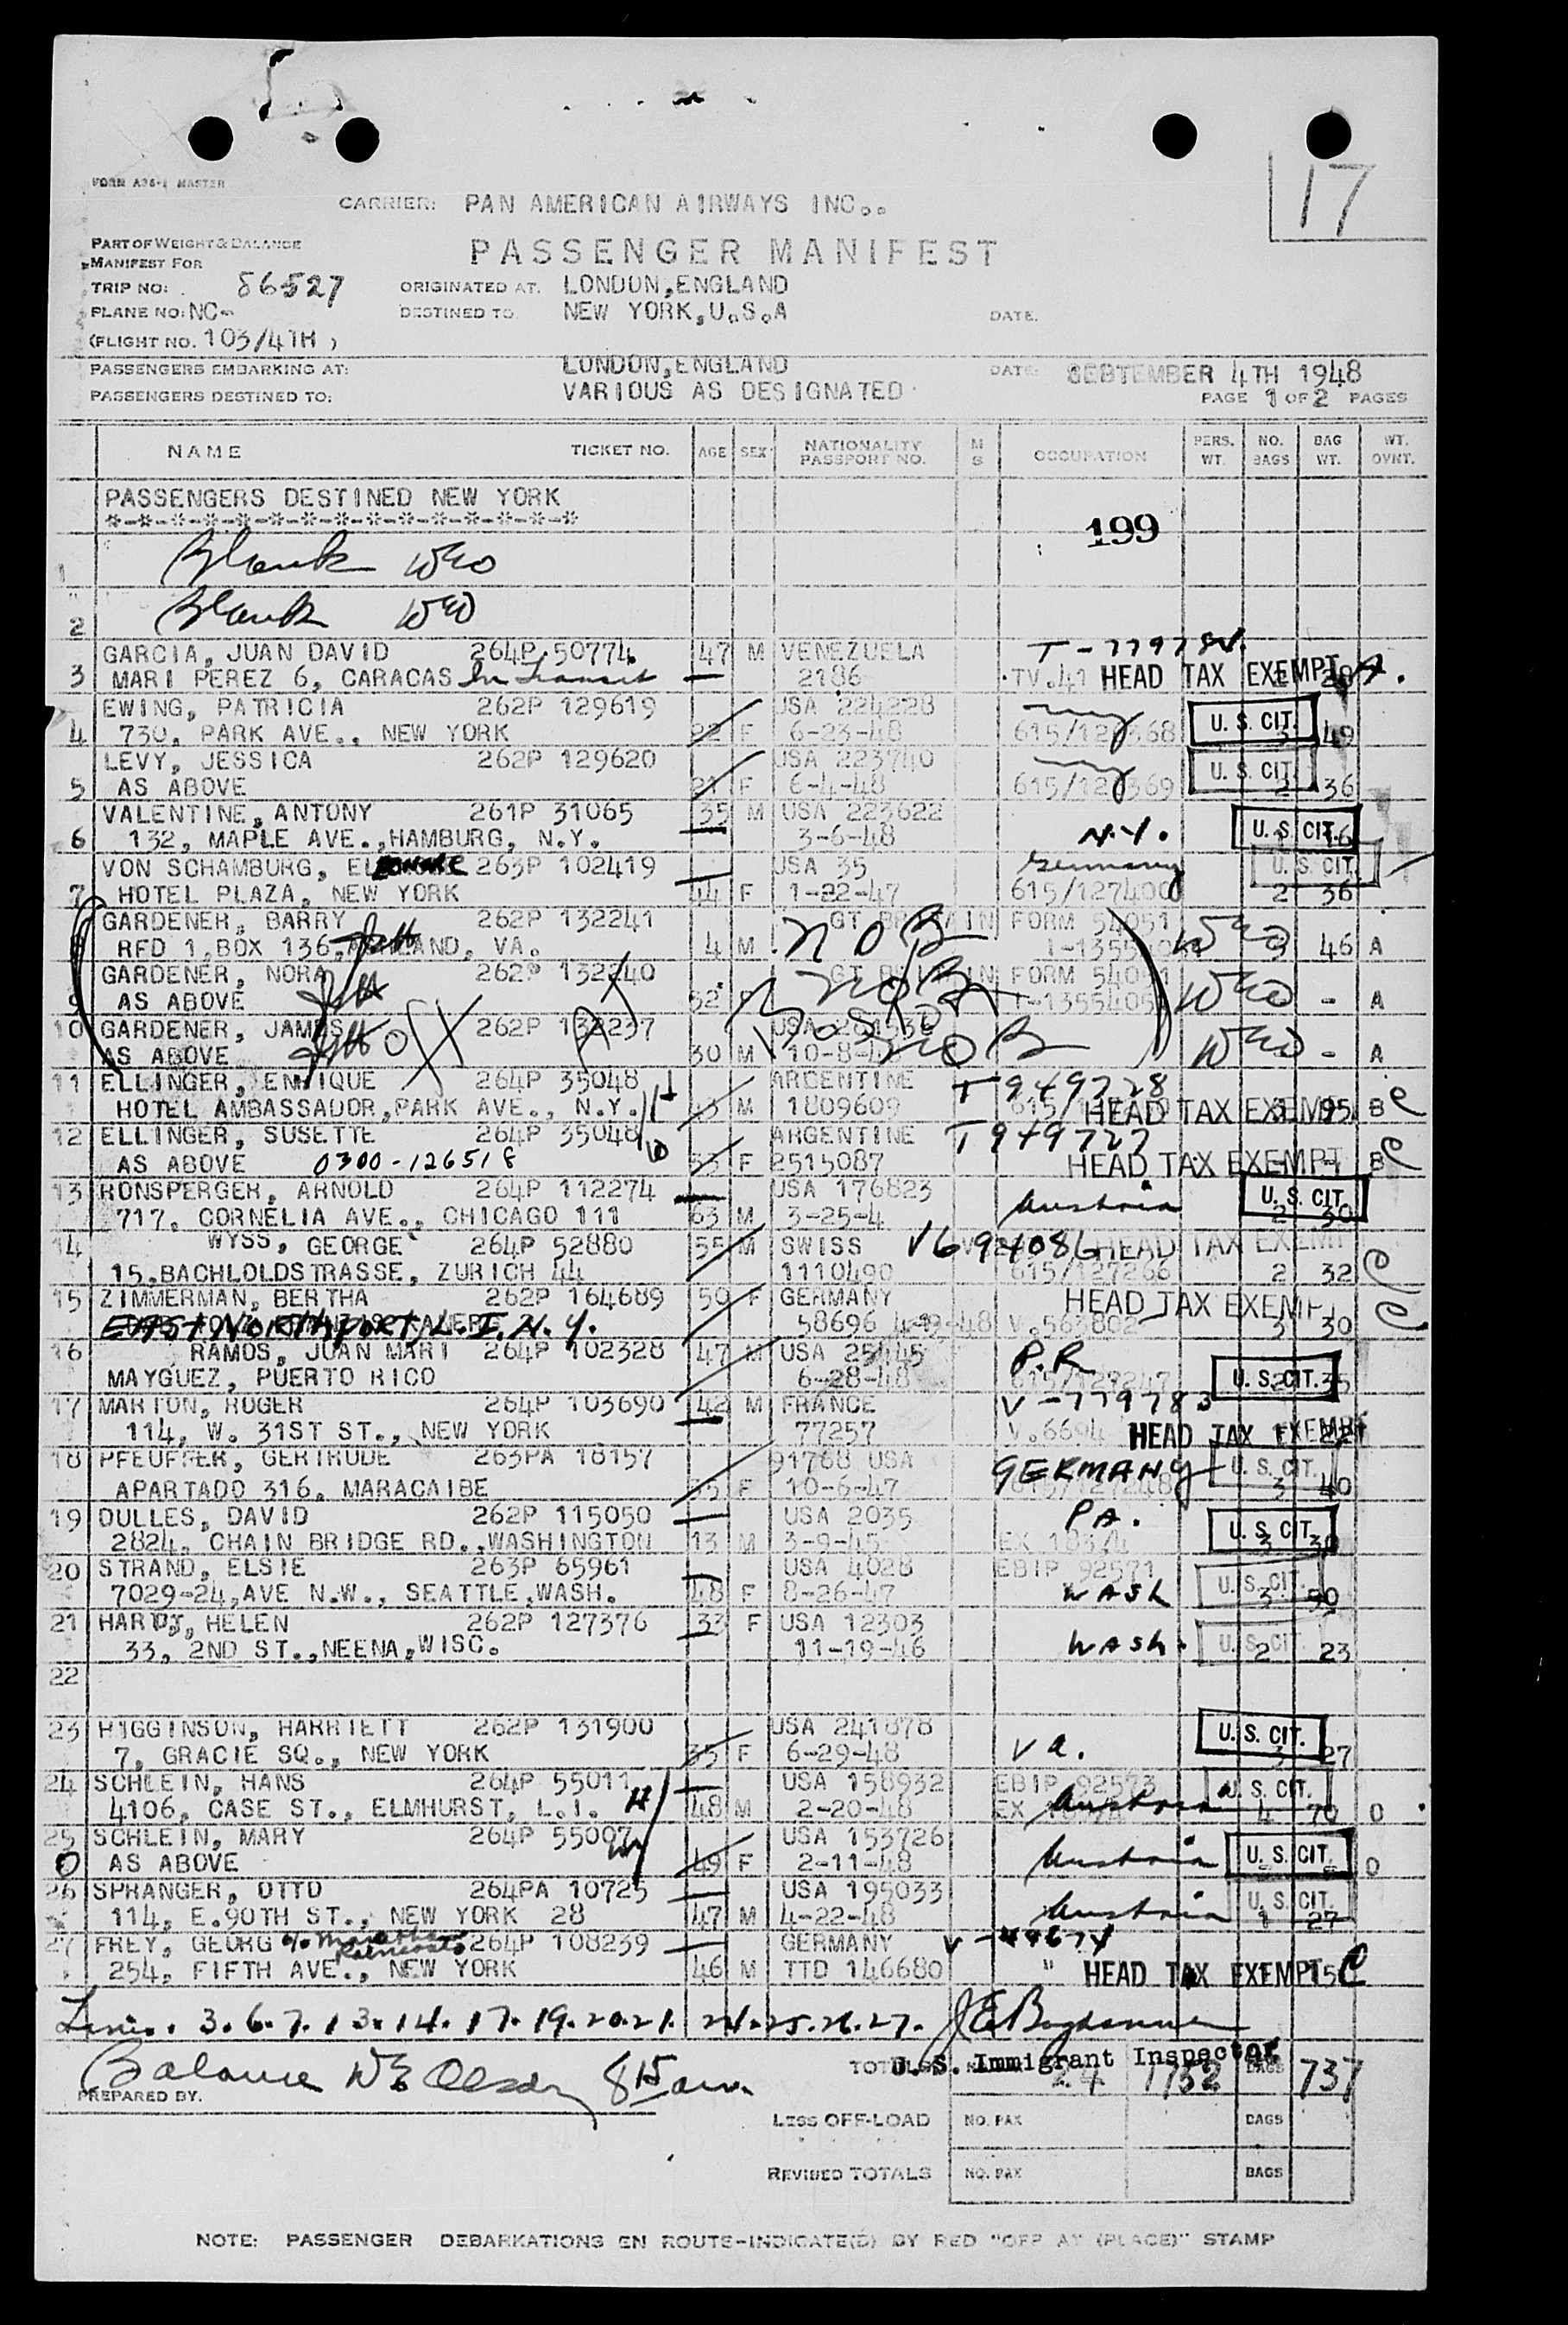 17
FORM A36-1 MASTER
CARRIER: PAN AMERICAN AIRWAYS INC..
PART OF WEIGHT & BALANCE
PASSENGER MANIFEST
MANIFEST FOR
TRIP NO: 86527 ORIGINATED AT. LONDON,ENGLAND
PLANE NO: NC- DESTINED TO. NEW YORK,U.S.A DATE.
(FLIGHT NO. 103/4TH )
PASSENGERS EMBARKING AT: LONDON,ENGLAND DATE: SEPTEMBER 4TH 1948
PASSENGERS DESTINED TO: VARIOUS AS DESIGNATED PAGE 1 OF 2 PAGES
NAME TICKET NO. AGE SEX NATIONALITY PASSPORT NO. M S OCCUPATION PERS. WT. NO. BAGS BAG WT. WT. OVNT.
PASSENGERS DESTINED NEW YORK
*-*-*-*-*-*-*-*-*-*-*-*-*-*-*
199
1 Blank WEO
2 Blank WEO
GARCIA, JUAN DAVID 264P 50774 47 M VENEZUELA T-779784
3 MARI PEREZ 6, CARACAS In Transit 2186 TV.41 HEAD TAX EXEMPT A.
EWING, PATRICIA 262P 129619 USA 224228 U. S. CIT.
4 730, PARK AVE., NEW YORK 22 F 6-23-48 615/127368 3 49
LEVY, JESSICA 262P 129620 USA 223740 U. S. CIT.
5 AS ABOVE 21 F 6-4-48 615/127369 2 36
VALENTINE, ANTONY 261P 31065 35 M USA 223622
6 132, MAPLE AVE.,HAMBURG, N.Y. 3-6-48 N.Y. U. S. CIT. 16
VON SCHAMBURG, ELEONORE 263P 102419 USA 35 Germany U. S. CIT.
7 HOTEL PLAZA, NEW YORK 44 F 1-22-47 615/127400 2 36
GARDENER, BARRY 262P 132241 GT BRITAIN FORM 54051
8 RFD 1,BOX 136, VA. 4 M NOB WEO 3 46 A
GARDENER, NORA 262P 132240 GT BRITAIN FORM 54051
9 AS ABOVE 32 F NOB WEO - A
10 GARDENER, JAMES 262P 132237 USA
AS ABOVE Off At Boston 30 M 10-8-4 NOB WEO - A
11 ELLINGER, ENTIQUE 264P 35048 ARGENTINE T 949728
HOTEL AMBASSADOR,PARK AVE., N.Y. 43 M 1809609 HEAD TAX EXEMPT 95 B C
12 ELLINGER, SUSETTE 264P 35048 ARGENTINE T 949727
AS ABOVE 0300-126518 33 F 2515087 HEAD TAX EXEMPT - B C
13 RONSPERGER, ARNOLD 264P 112274 USA 176823 U. S. CIT.
717, CORNELIA AVE., CHICAGO 111 63 M 3-25-4 Austria 2 30
14 WYSS, GEORGE 264P 52880 55 M SWISS V694086 HEAD TAX EXEMPT
15,BACHLOLDSTRASSE, ZURICH 44 1110490 615/127266 2 32 C
15 ZIMMERMAN, BERTHA 262P 164689 50 F GERMANY HEAD TAX EXEMPT
EAST NORTHPORT L.I. N.Y. 58696 4-19-48 V.563802 3 30 C
16 RAMOS, JUAN MARI 264P 102328 47 M USA 25445 P.R. U. S. CIT.
MAYGUEZ, PUERTO RICO 6-28-48 615/127247 2 35
17 MARTON, ROGER 264P 103690 42 M FRANCE V-779783
114, W. 31ST ST., NEW YORK 77257 V.6694 HEAD TAX EXEMPT
18 PFEUFFER, GERTRUDE 263PA 18157 91768 USA GERMANY U. S. CIT.
APARTADO 316, MARACAIBE 35 F 10-6-47 615/127248 3 40
19 DULLES, DAVID 262P 115050 USA 2035 PA. U. S. CIT.
2824, CHAIN BRIDGE RD.,WASHINGTON 13 M 3-9-45 3 30
20 STRAND, ELSIE 263P 65961 USA 4028 EBIP 92571 U. S. CIT.
7029-24,AVE N.W., SEATTLE,WASH. 48 F 8-26-47 WASH 3 50
21 HARDJ, HELEN 262P 127376 33 F USA 12303
33, 2ND ST.,NEENA,WISC. 11-19-46 WASH. U. S. CIT. 2 23
22
23 HIGGINSON, HARRIETT 262P 131900 USA 241878 U. S. CIT.
7, GRACIE SQ., NEW YORK 35 F 6-29-48 Va. 3 27
24 SCHLEIN, HANS 264P 55011 USA 158932 EBIP 92573 U. S. CIT.
4106, CASE ST., ELMHURST, L.I. H 48 M 2-20-48 Austria 4 70 O
25 SCHLEIN, MARY 264P 55007 USA 153726
AS ABOVE W 49 F 2-11-48 Austria U. S. CIT. O
26 SPRANGER, OTTO 264PA 10725 USA 195033 U. S. CIT.
114, E.90TH ST., NEW YORK 28 47 M 4-22-48 Austria 1 27
27 FREY, GEORG c/o 264P 108239 GERMANY
254, FIFTH AVE., NEW YORK 46 M TTD 146680 " HEAD TAX EXEMPT C
Lines. 3.6.7.13.14.17.19.20.21. 24.25.26.27.
U. S. Immigrant Inspector
Balance 8 15 am. TOTALS 24 1752 BAGS 737
PREPARED BY.
LESS OFF-LOAD NO. PAX BAGS
REVISED TOTALS NO. PAX BAGS
NOTE: PASSENGER DEBARKATIONS EN ROUTE-INDICATE(D) BY RED "OFF AT (PLACE)" STAMP